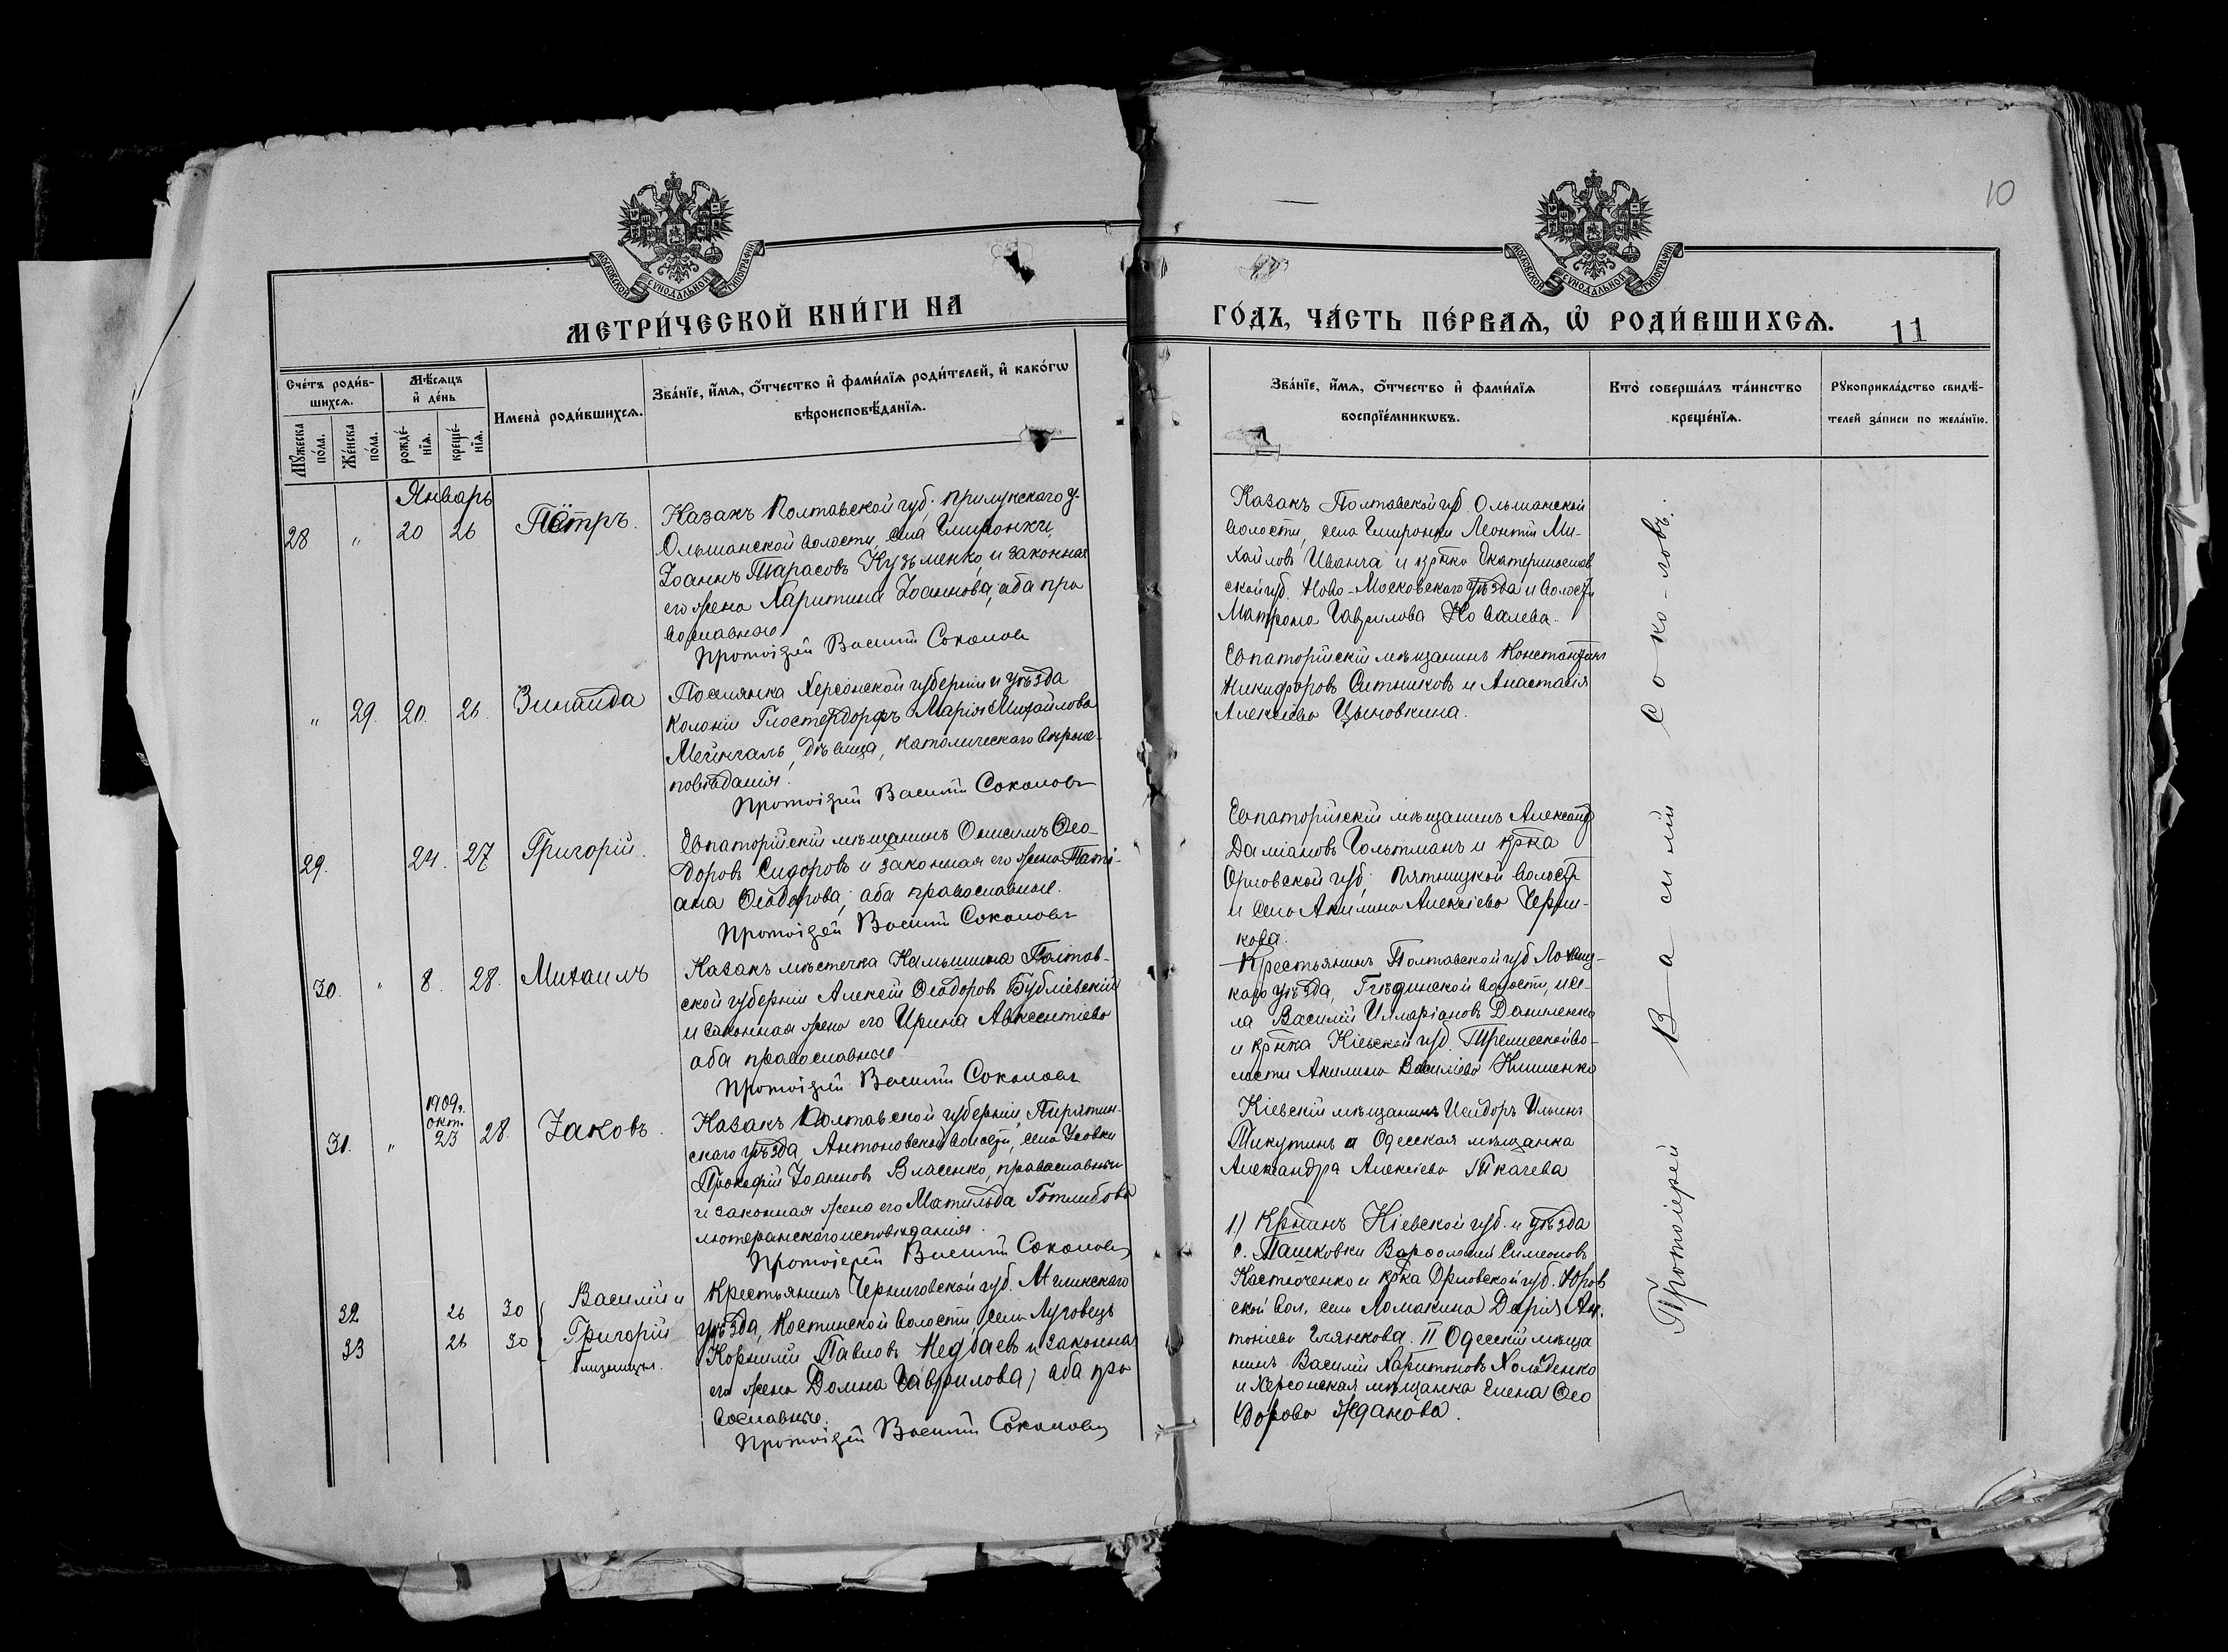 10
МОСКОВСКОЙ СѴНОДАЛЬНОЙ ТИПОГРАФІИ
МОСКОВСКОЙ СѴНОДАЛЬНОЙ ТИПОГРАФІИ
МЕТРИ́ЧЕСКОЙ КНИ́ГИ НА
ГО́ДЪ, ЧА́СТЬ ПЕ́РВАѦ, Ѽ РОДИ́ВШИХСѦ.
11
Сче́тъ роди́в-
шихсѧ.
Мꙋ́жеска
по́ла.
Же́нска
по́ла.
Мѣ́сѧцъ
и҆ де́нь
рожде́-
нїѧ.
креще́-
нїѧ.
Имена̀ роди́вшихсѧ.
Зва́нїе, и҆́мѧ, ѻ҆́тчество и҆ фами́лїѧ роди́телей, и҆ како́гѡ
вѣроисповѣ́данїѧ.
Зва́нїе, и҆́мѧ, ѻ҆́тчество и҆ фами́лїѧ
воспрїе́мникѡвъ.
Кто̀ соверша́лъ та́инство
креще́нїѧ.
Рꙋкоприкла́дство свидѣ́-
телей за́писи по жела́нїю.
Январь
28 " 20 26 Пётръ.
Казакъ Полтавской губ. Прилукскаго у.
Ольшанской волости, села
Іоаннъ Тарасовъ Кузьменко, и законная
его жена Харитина Іоаннова; аба пра
вославною
Протоіерей Василій Соколовъ
Казакъ Полтавской губ. Ольшанской
волости, села Леонтій Ми-
хайловъ Иванча и кр҃тка Екатеринослав
ской губ. Ново-Московскаго уѣзда и волости
Матрона Гаврилова Ковалева.
" 29. 20. 26. Зинаида
Поселянка Херсонской губерніи и уѣзда
колоніи Клостердорфъ Марія Михайлова
Мейнгалъ, дѣвица, католическаго вѣрои-
повѣданія.
Протоіерей Василій Соколовъ
Евпаторійскій мѣщанинъ Константинъ
Никифоровъ Ситниковъ и Анастасія
Алексіева Цыновкина.
29. 24. 27 Григорій.
Евпаторійскій мѣщанинъ Онисимъ Ѳео-
доровъ Сидоровъ и законная его жена Таті-
ана Ѳеодорова; аба православные.
Протоіерей Василій Соколовъ
Евпаторійскій мѣщанинъ Александ
Даміановъ Гольтманъ и кр҃тка
Орловской губ; Пятницкой волост
и села Акилина Алексіева Черни-
кова.
30. " 8. 28. Михаилъ
Казакъ мѣстечка Камышина Полтав-
ской губерніи Алексій Ѳеодоровъ Бубліевскій
и законная жена его Ирина Авксентіева
аба православные
Протоіерей Василій Соколовъ
Крестьянинъ Полтавской губ Лохвиц-
каго уѣзда, волости, и се-
ла Василій Илларіоновъ Даниленко
и кр҃тка Кіевской губ. во-
лости Акилина Василіева Клименко
1909 г.
окт.
31. " 23 28. Іаковъ.
Казакъ Полтавской губерніи, Пирятин-
скаго уѣзда, Антоновской волости, села Усовки
Прокофій Іоанновъ Власенко, православный
и законная жена его Матильда Готлибова
лютеранскаго исповѣданія.
Протоіерей Василій Соколовъ
Кіевскій мѣщанинъ Исидоръ Ильинъ
Пикутинъ и Одесская мѣщанка
Александра Алексіева Ткачева
32 26 30
33 26 30
Василій и
Григорій
близнецы.
Крестьянинъ Черниговской губ. Мглинскаго
уѣзда, Костинской волости, села Луговецъ
Корнилій Павловъ Недбаевъ и законная
его жена Домна Гаврилова; аба пра
вославные.
Протоіерей Василій Соколовъ
1) Кр҃тинъ Кіевской губ. и уѣзда
с. Пашковки Варѳоломей Симеоновъ
Костюченко и кр҃тка Орловской губ. Юров
ской вол. села Ломакина Дарія Ан-
тоніева Глянкова. II Одесскій мѣща
нинъ Василій Харитоновъ Холоденко
и Херсонская мѣщанка Елена Ѳео
дорова Жданова.
Протоіерей Василій Соколовъ.